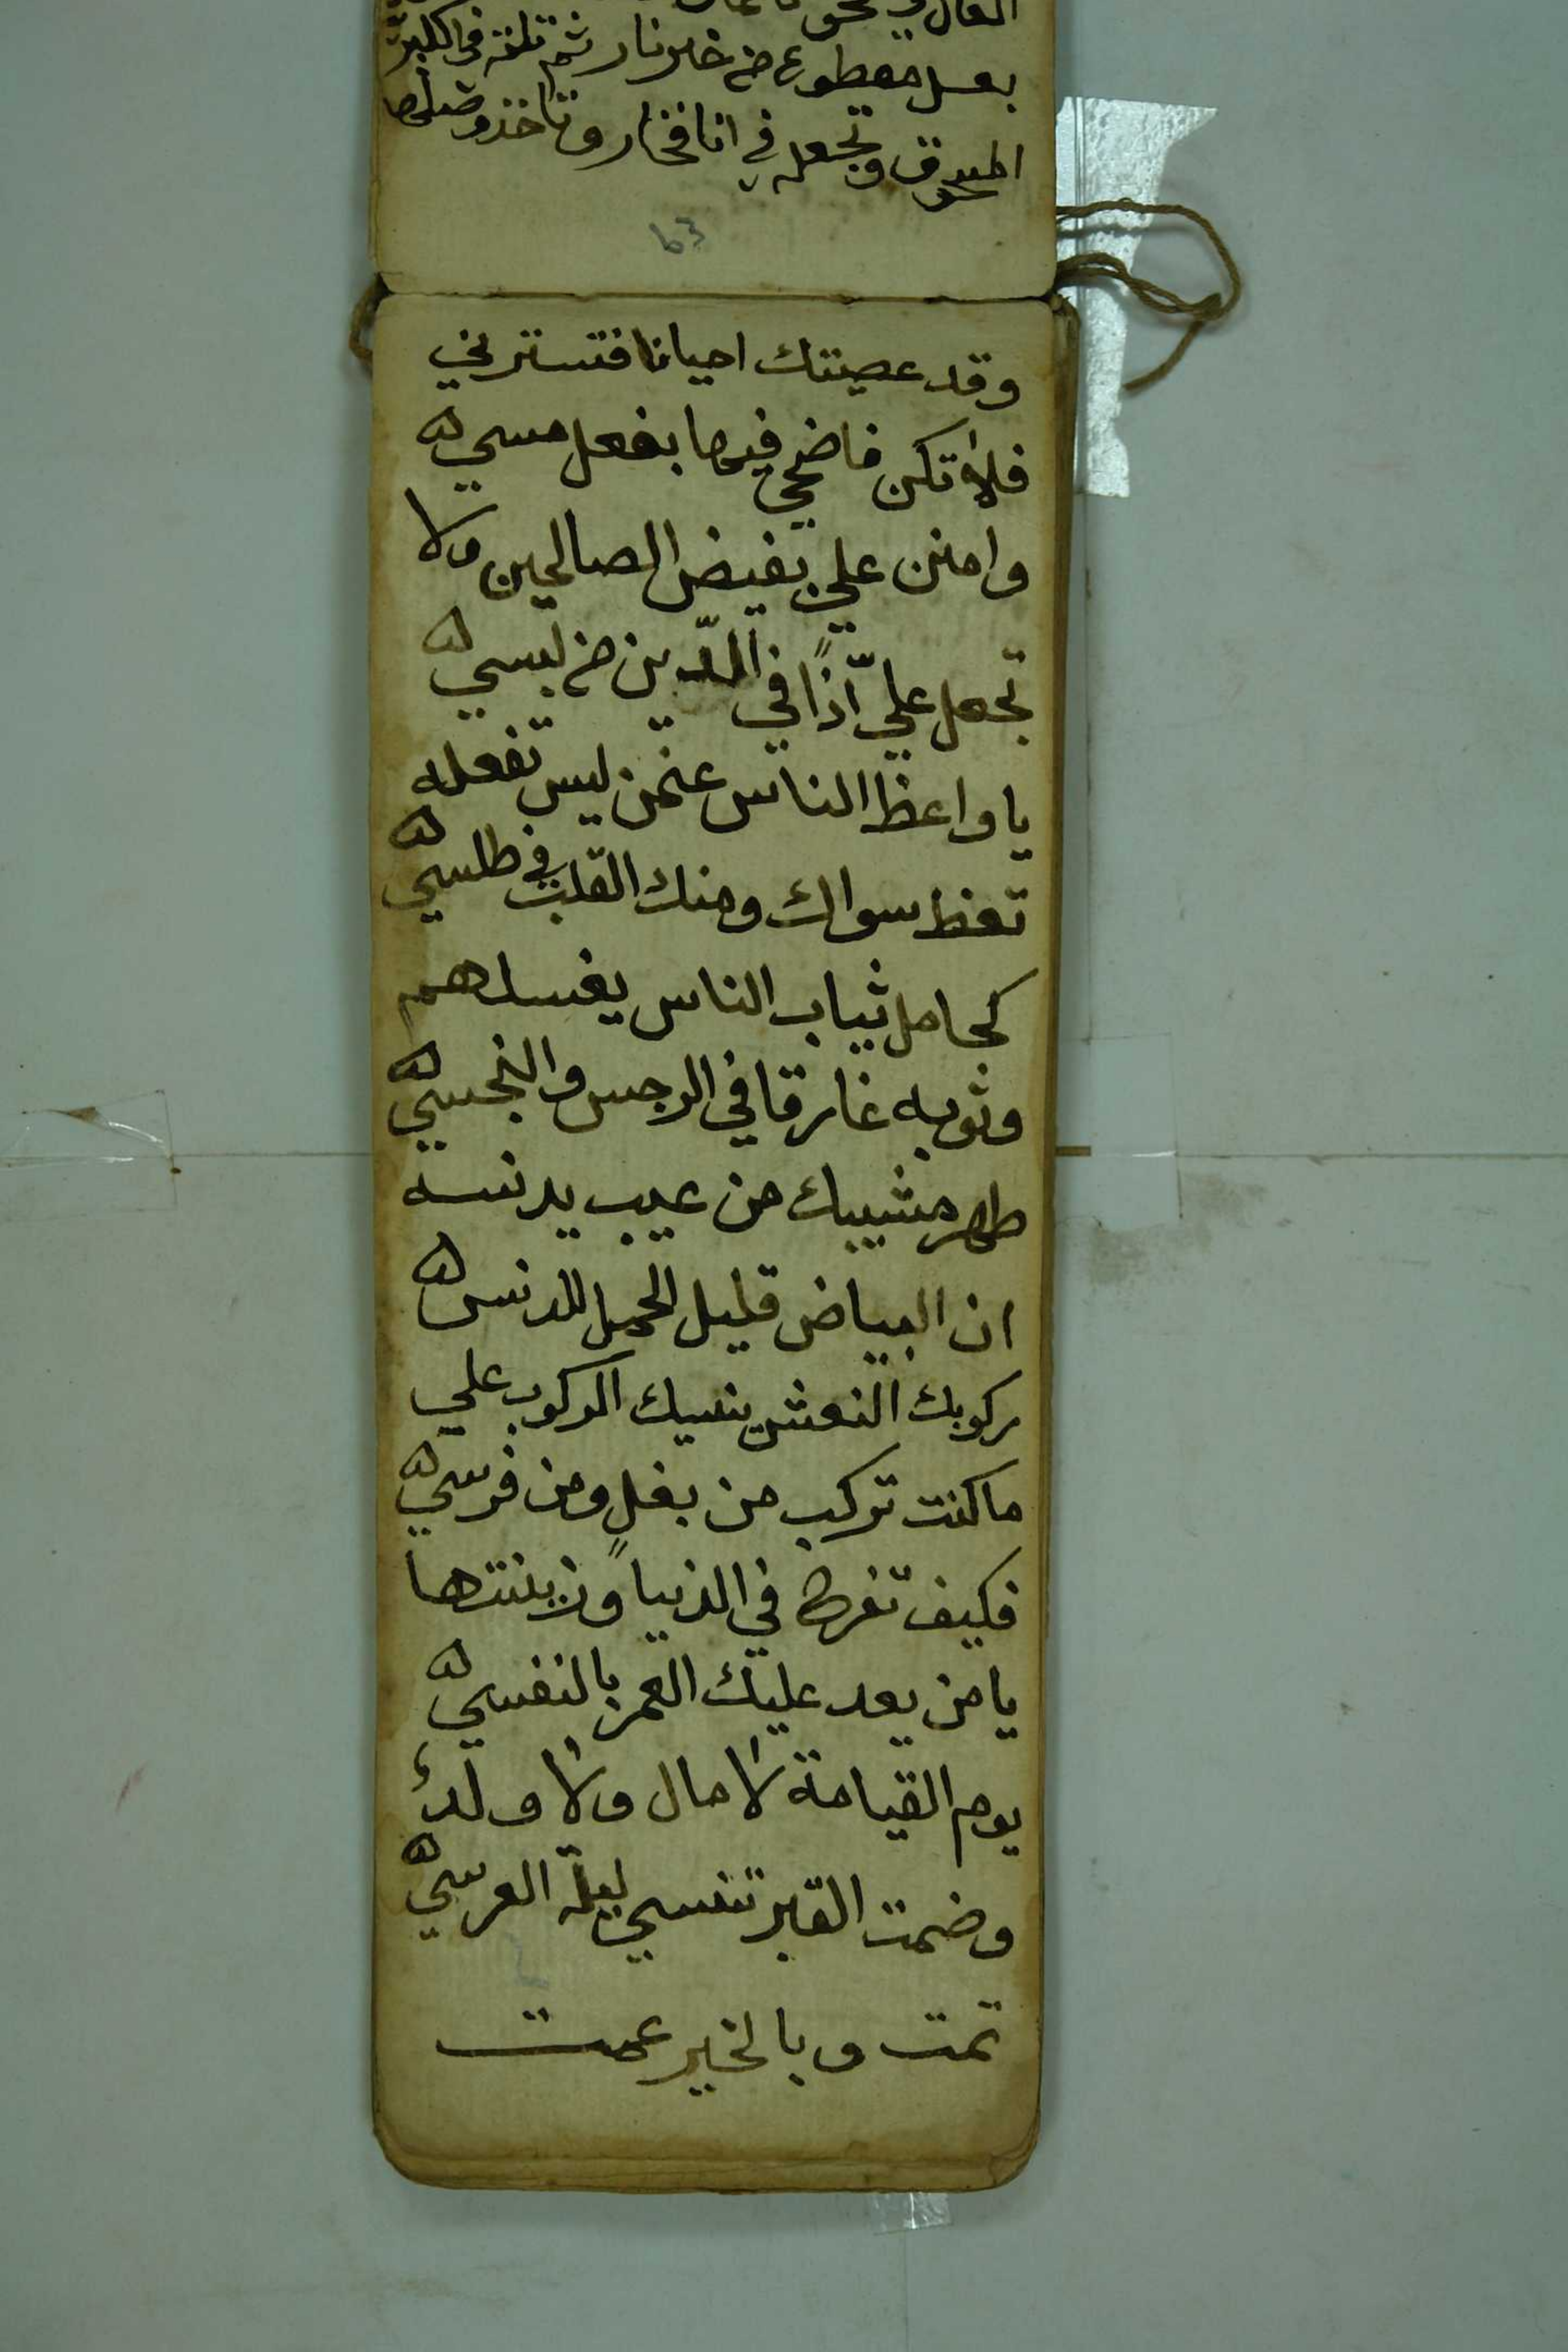 بعسل مقطوع من خير نار ثم تلته في الكبر
المعوق وتجعله في انا فخار وتاخذ وصلها
63
وقد عصيتك احيانا فتسترني
فلا تكن فاضحي فيها بفعل مسي ه
وامنن علي بفيض الصالحين ولا
تجعل عليّ اذًا في الدّين من لبسي ه
يا واعظ الناس عنمن ليس تفعله
تعظ سواك ومنك القلب في طلسي ه
كحامل ثياب الناس يغسلهم
وثوبه غارقا في الرجس والنجسي ه
طهر مشيبك من عيب يدنسه
ان البياض قليل الحمل للدنس ه
ركوبك النعش ينسيك الركوب علي
ما كنت تركب من بغلٍ ومن فرسي ه
فكيف تفرح في الدنيا وزينتها
يا من يعد عليك العمر بالنفسي ه
يوم القيامة لا مال ولا ولد
وضمت القبر تنسي ليلة العرسي ه
تمت وبالخير عمت